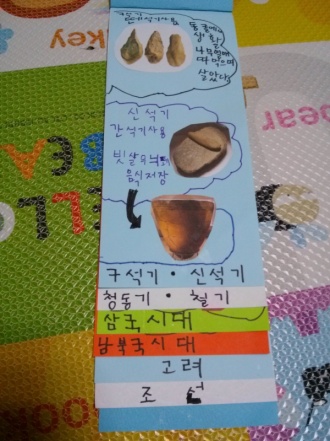 구석기
뗀석기사용
동굴에서
생활
나무열매
따먹으며
살았다
신석기
간석기사용
빗살무늬토기
음식저장
구석기 · 신석기
청동기 · 철기
삼국시대
남북국시대
고려
조선
key
bear